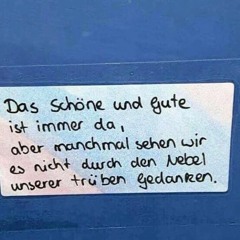 Das Schöne und gute
ist immer da,
aber manchmal sehen wir
es nicht durch den Nebel
unserer trüben Gedanken.